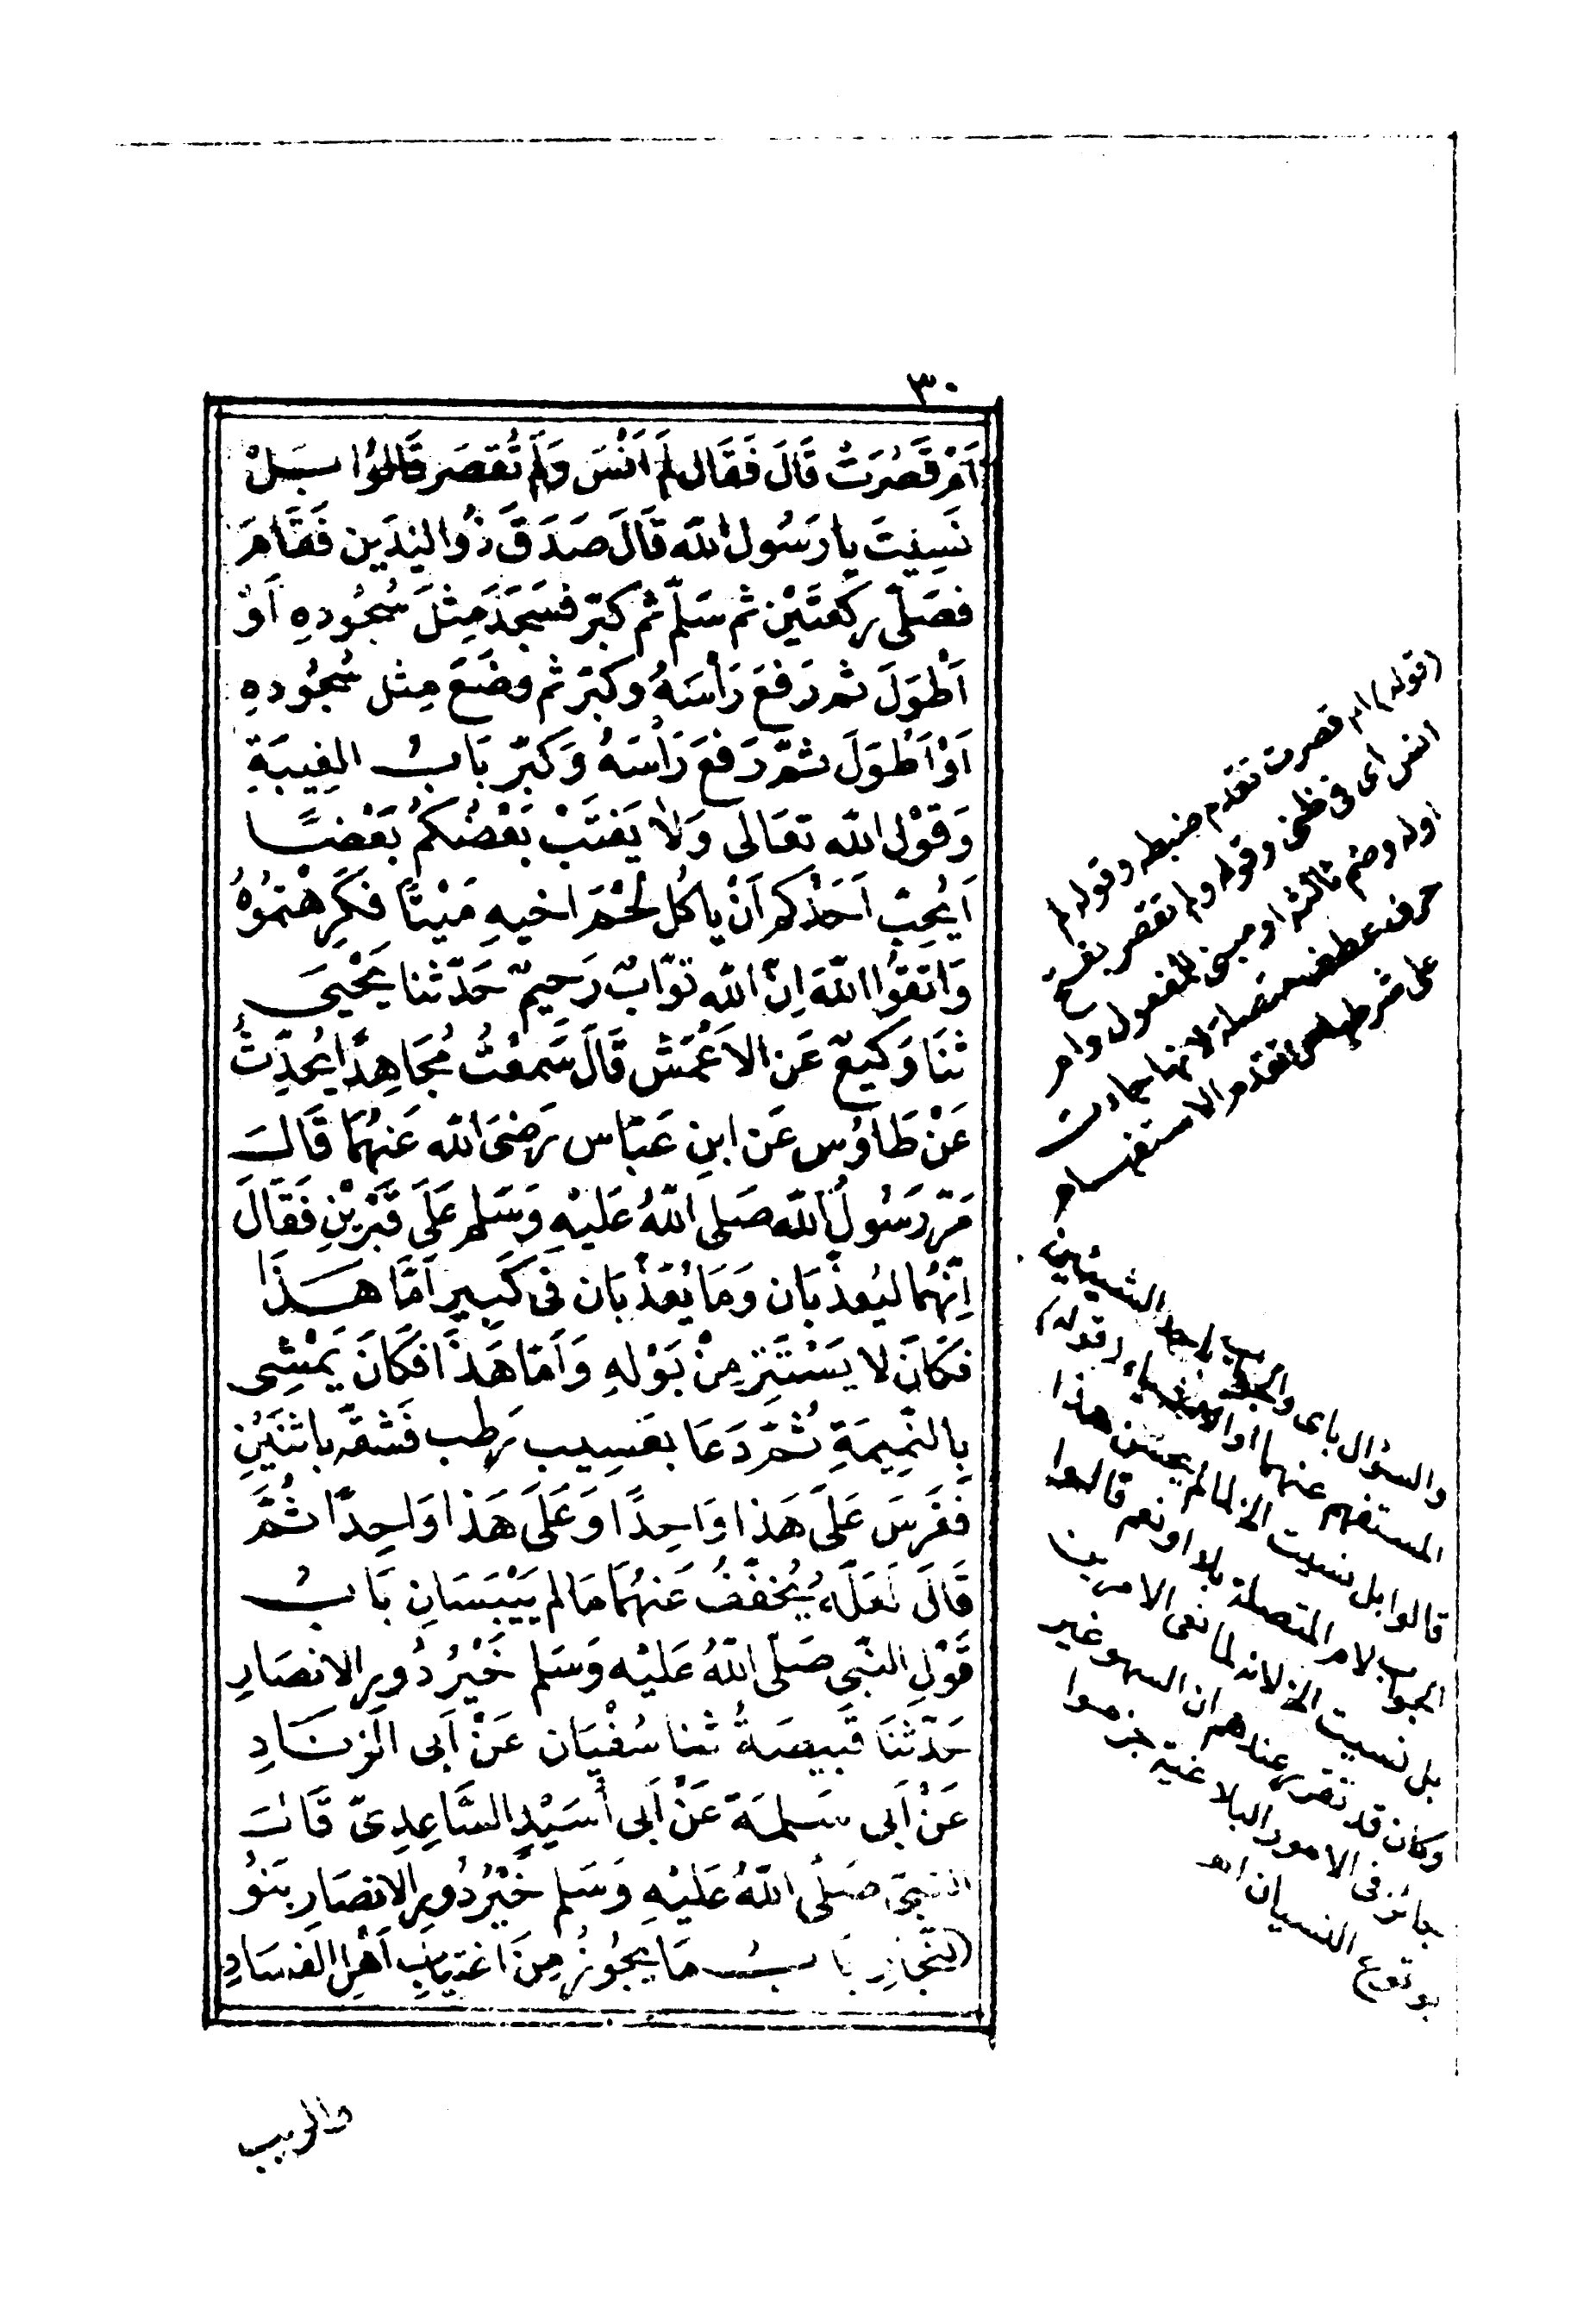 ٣٠
اَمْ قَصُرَتْ قَالَ فَقَال لم اَنْسَ وَلَم تُقصَر قَالوُا بَلْ
نَسِيْتَ يا رَسُول الله قَالَ صَدَقَ ذُو اليَدَين فَقَامَ
فصَلّى ركعتَيْن ثم سَلّم ثم كبّر فسَجَدَ مِثلَ سُجُودهِ اَوْ
اَطْوَلَ ثم رَفعَ رَأسَهُ وكبّر ثم وضَعَ مِثل سُجُودهِ
اَوْ اَطْوَلَ ثمّ رَفعَ رَأسَهُ وَكبّر بَابُ الغِيبَةِ
وَقوْل الله تعَالى وَلا يَغتَبْ بَعْضُكمُ بَعْضًا
اَيُحِبّ اَحَدُكم اَنْ ياكُل لحْمَ اخيهِ مَيْتًا فكَرِهْتمُوْهُ
وَاتقوُا اللهَ اِنّ الله توّابٌ رَحِيمٌ حَدّثنا يَحْيَى
ثنَا وَكيعٌ عَن الاَعْمَش قَالَ سَمعْتُ مُجَاهِدًا يُحَدِّثُ
عَنْ طَاوُس عَن ابنِ عَبّاس رَضىَ الله عَنهُمَا قَالَ
مَرّ رَسُولُ الله صَلى اللهُ عَليْهِ وَسَلم عَلَى قبْرَيْنِ فَقَالَ
اِنّهُما ليُعَذّبَان وَمَا يُعَذّبَان فى كَبِير اَمّا هَذَا
فكَانَ لا يَسْتَتِر مِنْ بَوْلهِ وَاَمّا هَذَا فكَانَ يَمْشِى
بِالنّمِيمَةِ ثُمّ دَعَا بعَسِيب رَطب فَشقّه باثنَيْنِ
فغَرَسَ عَلَى هَذا وَاحِدًا وَعَلَى هَذا وَاحِدًا ثُمَّ
قَالَ لَعَلّهُ يُخفّفُ عَنهُمَا مَا لم يَيْبَسَانِ بَابُ
قَوْلِ النّبى صَلّى اللهُ عَليْه وَسَلم خَيْرُ دُورِ الانصَارِ
حَدّثنَا قَبِيصَةُ ثنا سُفيَان عَنْ اَبى الزنَادِ
عَنْ اَبى سَلمَة عَنْ اَبى اُسَيْدٍ السّاعِدِىّ قَالَ
النبىّ صَلّى اللهُ عَليْهِ وَسَلم خَيْرُ دُورِ الانصَارِ بَنوُ
النّجّارِ بَابُ مَا يجُوزُ مِنَ اغتيَابِ اَهْلِ الفسَادِ
والريب
(قوله) ام قصرت تقدم ضبطه وقوله لم
انس اى فى ظنى وقوله ولم تقصر بفتح
اوله وضم ثالثه او مبنى للمفعول وام
حرف عطف متصلة لانها جاءت
على شرطها تقدم الاستفهام
والسؤال باى والجواب باحد الشيئين
المستفهم عنهما او الاشياء وقوله
قالوا بل نسيت الخ لما لم يحسن هذا
الجواب لام المتصلة بلا او نعم قالوا
بل نسيت الخ لانه لما نفى الامرين
وكان قد تقرر عندهم ان السهو غير
جائز فى الامور البلاغية جزموا
بوقوع النسيان اهـ